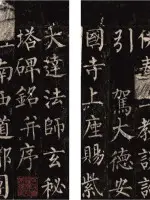 供奉三教談論
引駕大德安
國寺上座賜紫
大達法師玄秘
塔碑銘并序
南西道都團